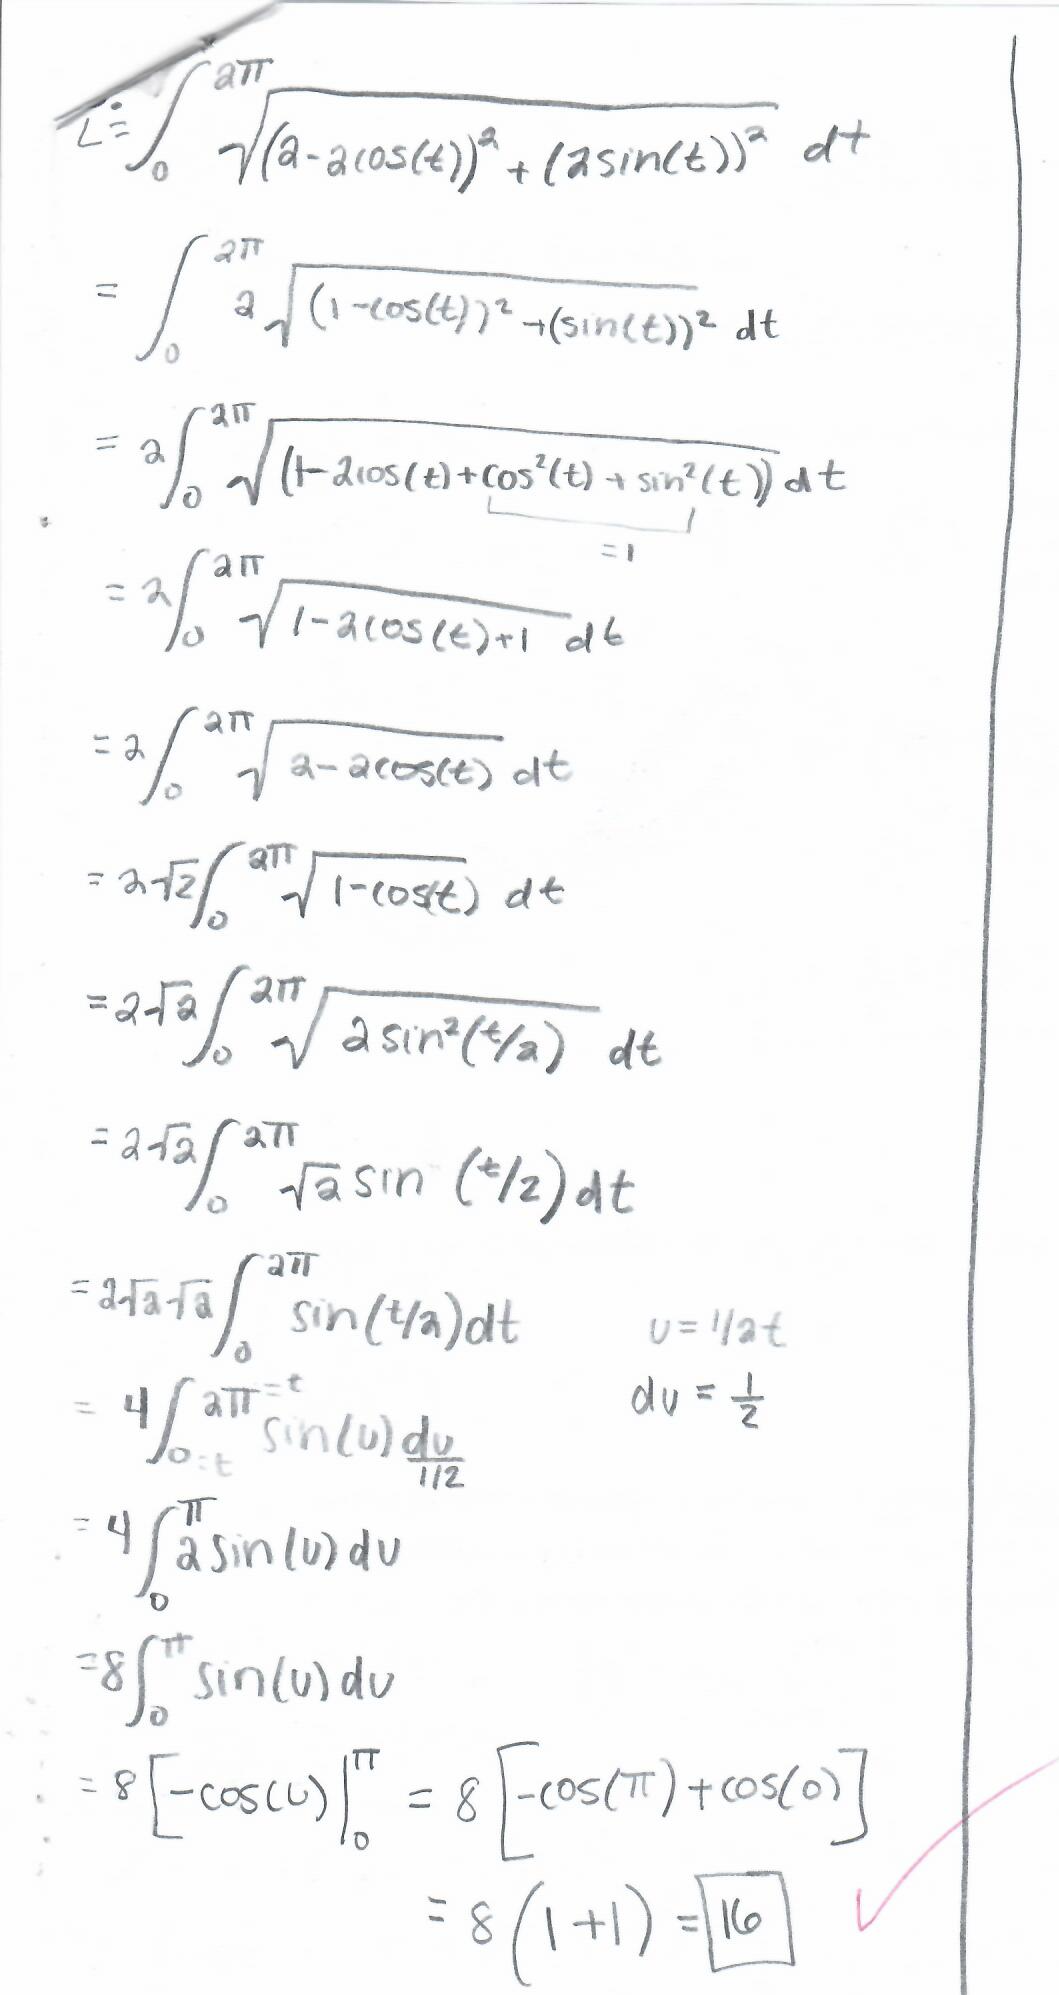 L = ∫₀^{2π} √((2-2cos(t))² + (2sin(t))²) dt
= ∫₀^{2π} 2√((1-cos(t))² + (sin(t))²) dt
= 2∫₀^{2π} √((1-2cos(t)+cos²(t)+sin²(t))) dt
=1
= 2∫₀^{2π} √(1-2cos(t)+1) dt
= 2∫₀^{2π} √(2-2cos(t)) dt
= 2√2∫₀^{2π} √(1-cos(t)) dt
= 2√2∫₀^{2π} √(2sin²(t/2)) dt
= 2√2∫₀^{2π} √2 sin(t/2) dt
= 2√2√2∫₀^{2π} sin(t/2) dt u = 1/2t
= 4∫_{0=t}^{2π=t} sin(u) du/(1/2) du = 1/2
= 4∫₀^{π} 2sin(u) du
= 8∫₀^{π} sin(u) du
= 8[-cos(u)|₀^{π} = 8[-cos(π)+cos(0)]
= 8(1+1) = 16